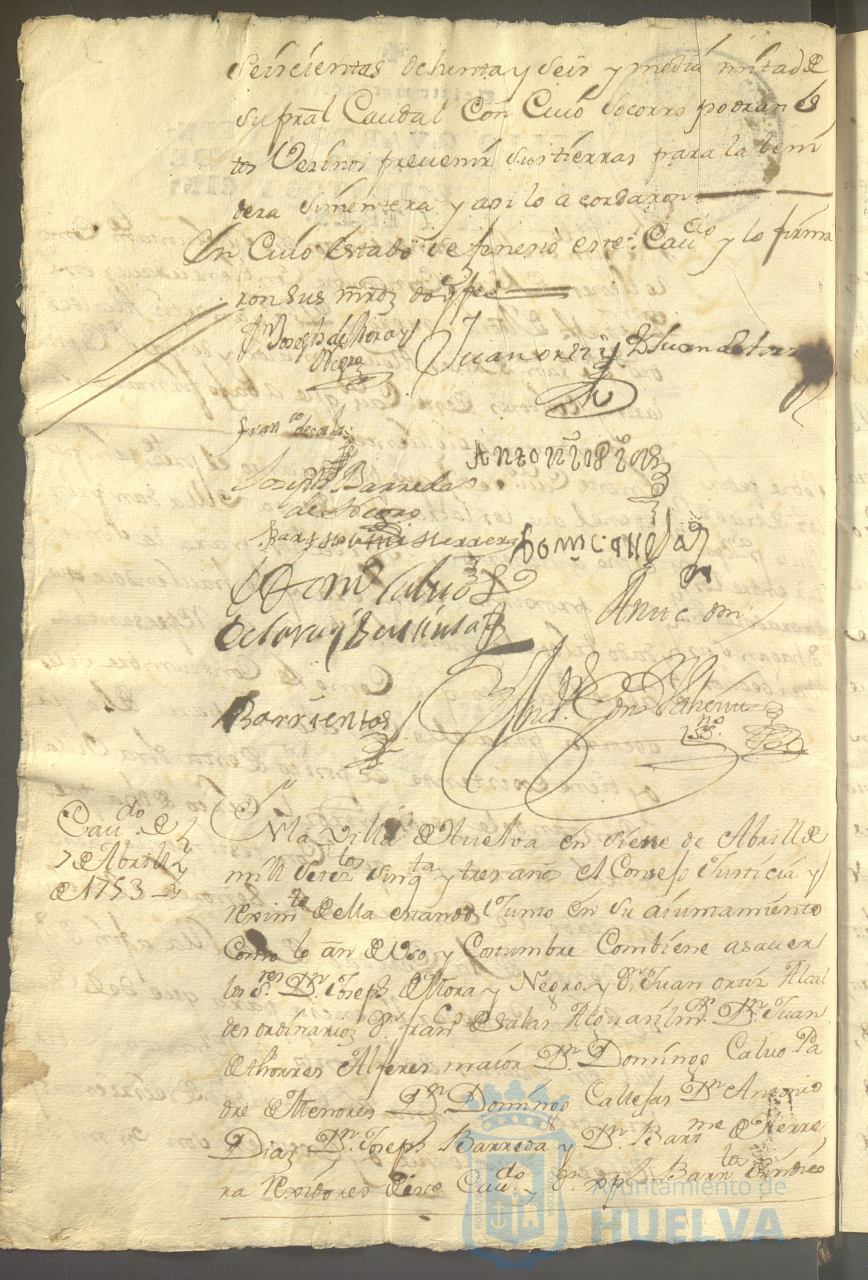 seiscientas ochenta y seis y media mitad de
su pral Caudal Con Cuio Socorro podran es
tos Vesinos prevenir sus tierras para la beni
dera Simentera y asi lo acordaron
En Cuio estado se fenesio este Cavdo y lo firma
ron sus mrds doy fee
Dn Joseph de Mora y
Negro
Juan ortiz
D Juan de torres
Franco de salas
Antonio
Joseph Barreda
de Negro
Bartholome Herrera
Domingo Callejas
Domo Calvo
Barrientos
Cavdo de
7 de Abrill
de 1753
En la Villa de Huelva en siete de Abrill de
mill Setezos Sinqta y tres años el Consejo Justicia y
Reximto de ella estando Junto en su aiuntamiento
Como lo an de Uso y Costumbre Combiene a saver
los Sres Dn Joseph de Mora y Negro y Dn Juan ortiz Alcal
des ordinarios Dn Franco de salas Alguasil mr Dn Juan
de thorres Alferes maior Dn Domingo Calvo Pa
dre de Menores Dn Domingo Callejas Dn Antonio
Diaz Dn Joseph Barreda y Dn Barme de Herre
ra Rexidores de este Cavdo y Dn Barrtos Sindico
Ayuntamiento de
HUELVA